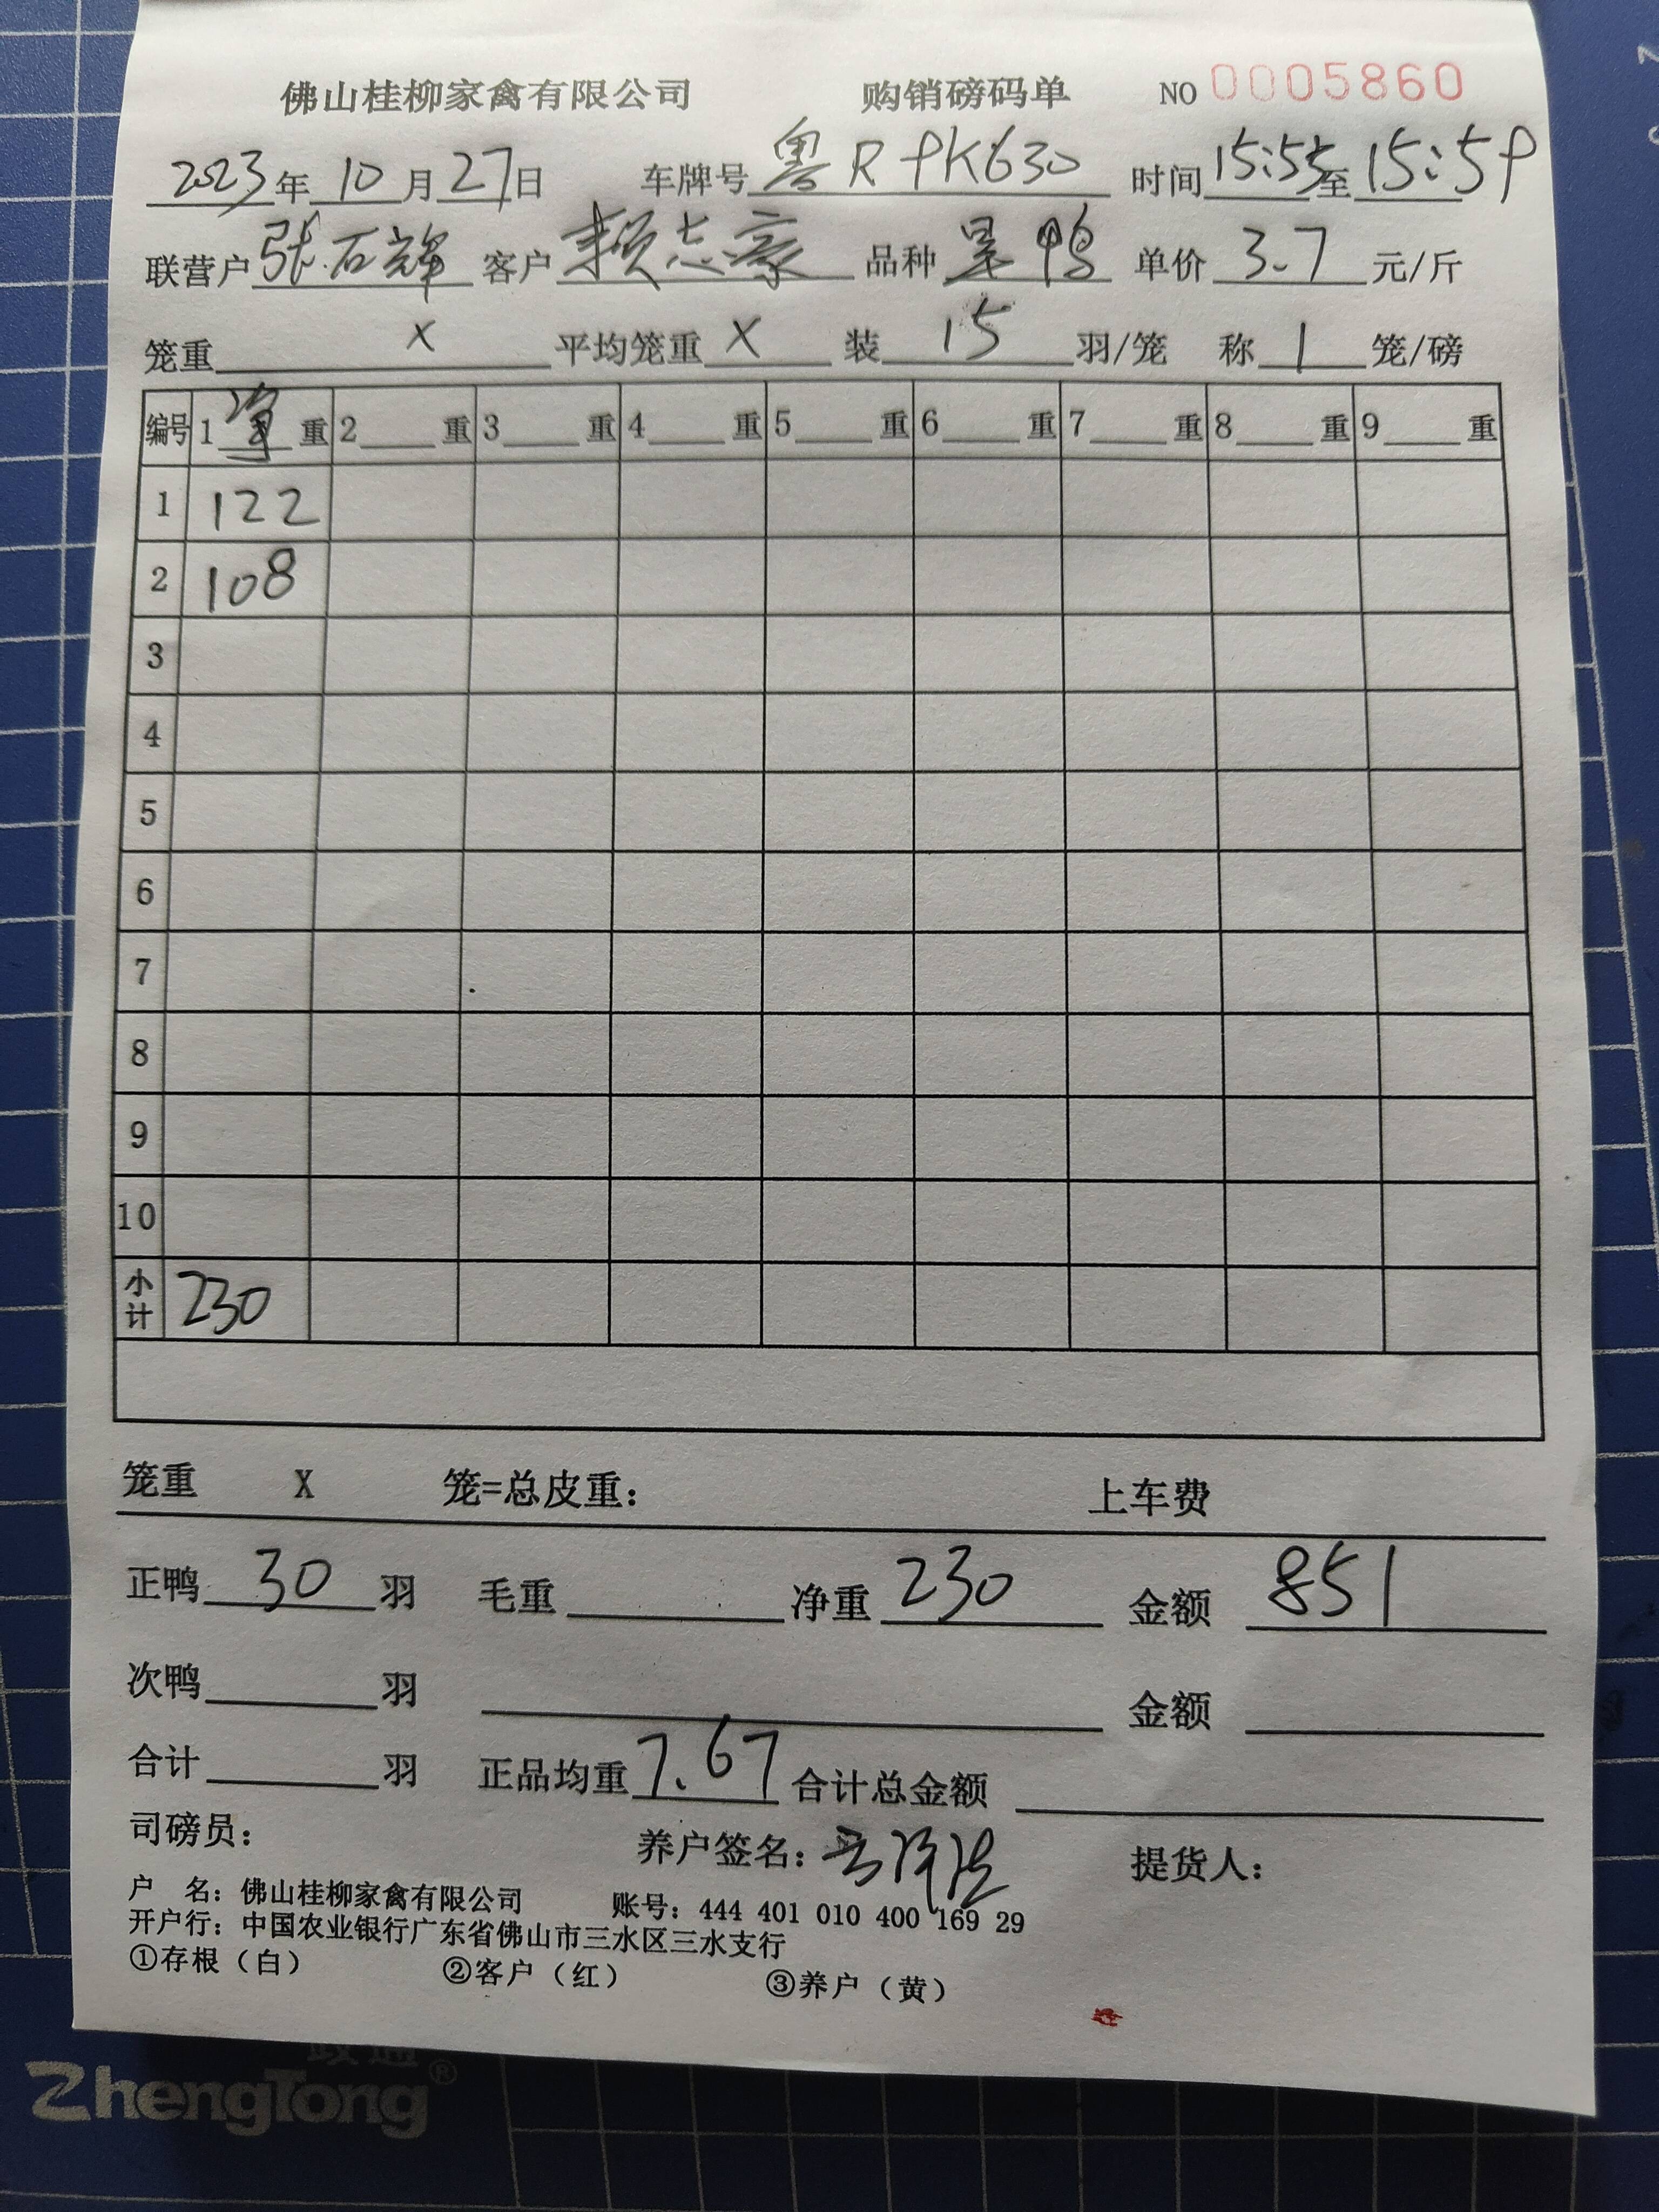 佛山桂柳家禽有限公司 购销磅码单 NO 0005860
2023年10月27日 车牌号粤R PK630 时间15:55至15:59
联营户张石辉 客户赖志豪 品种 鸭 单价3.7元/斤
笼重 X 平均笼重 X 装 15 羽/笼 称 1 笼/磅
编号 1 重 2 重 3 重 4 重 5 重 6 重 7 重 8 重 9 重
1 122
2 108
3
4
5
6
7
8
9
10
小计 230
笼重 X 笼=总皮重： 上车费
正鸭 30 羽 毛重 净重 230 金额 851
次鸭 羽 金额
合计 羽 正品均重 7.67 合计总金额
司磅员： 养户签名： 提货人：
户 名：佛山桂柳家禽有限公司 账号：444 401 010 400 169 29
开户行：中国农业银行广东省佛山市三水区三水支行
①存根（白） ②客户（红） ③养户（黄）
ZhengTong®